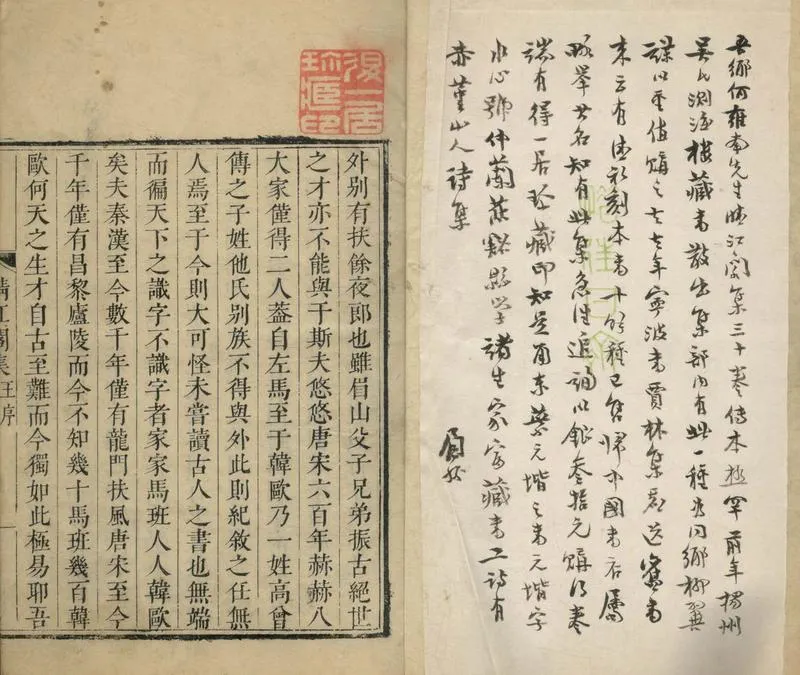 吾鄉何雍南先生晴江閣集三十卷傳本極罕前年揚州
吴氏測海樓藏書散出集部內有此一種爲同鄉柳翼
謀以重值購之去年寧波書賈林集虛送舊書
來云有清初刻本書十餘種已售歸中國書店屬
略舉其名知有此集急往追詢以銀叁拾元購得卷
端有得一居珍藏印知是甬東蔡元堦之書元堦字
水心號仲蘭慈谿縣學諸生家富藏書工詩有
赤堇山人詩集
眉孫
得一居
珍藏印
外别有扶餘夜郎也雖眉山父子兄弟振古絕世
之才亦不能與于斯夫悠悠唐宋六百年赫赫八
大家僅得二人葢自左馬至于韓歐乃一姓高曾
傳之子姓他氏别族不得與外此則紀敘之任無
人焉至于今則大可怪未嘗讀古人之書也無端
而徧天下之識字不識字者家家馬班人人韓歐
矣夫秦漢至今數千年僅有龍門扶風唐宋至今
千年僅有昌黎廬陵而今不知幾十馬班幾百韓
歐何天之生才自古至難而今獨如此極易耶吾
晴江閣集王序